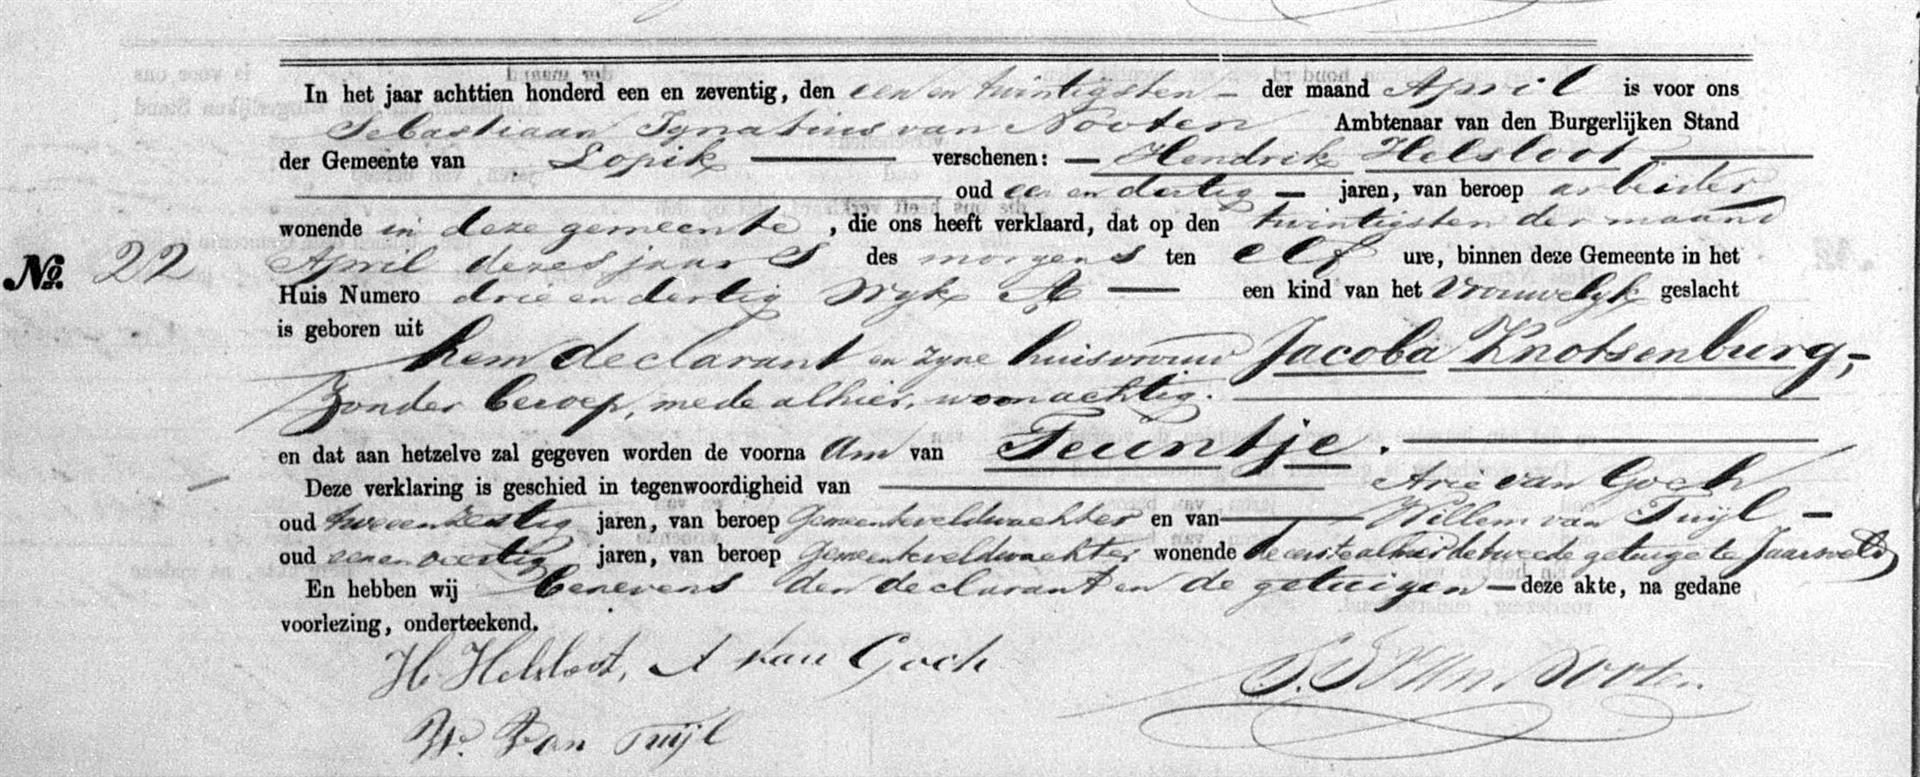 In het jaar achttien honderd een en zeventig, den een en twintigsten – der maand April is voor ons
Sebastiaan Ignatius van Nooten Ambtenaar van den Burgerlijken Stand
der Gemeente van Lopik — verschenen: — Hendrik Helsloot —
oud een en dertig — jaren, van beroep arbeider
wonende in deze gemeente, die ons heeft verklaard, dat op den twintigsten der maand
No. 22 April dezes jaars des morgens ten elf ure, binnen deze Gemeente in het
Huis Numero drie en dertig Wyk A — een kind van het Vrouwelyk geslacht
is geboren uit
hem declarant en zyne huisvrouw Jacoba Knotsenburg,–
Zonder beroep, mede alhier, woonachtig.
en dat aan hetzelve zal gegeven worden de voorna am van Teuntje.
Deze verklaring is geschied in tegenwoordigheid van — Arie van Goch
oud tweeenzestig jaren, van beroep Gemeenteveldwachter en van — Willem van Tuijl –
oud eenenveertig jaren, van beroep Gemeenteveldwachter wonende de eerste alhier de tweede getuige te Jaarsveld
En hebben wij benevens den declarant en de getuigen — deze akte, na gedane
voorlezing, onderteekend.
H. Helsloot, A van Goch S. I. van Nooten.
W. van Tuijl